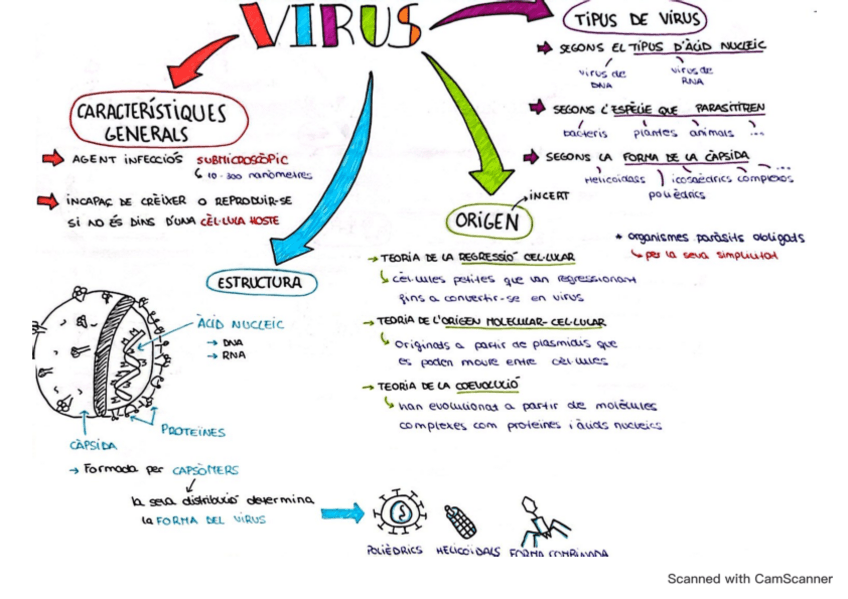 VIRUS
CARACTERÍSTIQUES
GENERALS
→ AGENT INFECCIÓS SUBMICROSCÒPIC
↳ 10-300 nanòmetres
→ INCAPAÇ DE CRÈIXER O REPRODUIR-SE
SI NO ÉS DINS D'UNA CÈL·LULA HOSTE
TIPUS DE VIRUS
→ SEGONS EL TIPUS D'ÀCID NUCLEIC
virus de DNA
virus de RNA
→ SEGONS L'ESPÈCIE QUE PARASITITEN
bacteris plantes animals ...
→ SEGONS LA FORMA DE LA CÀPSIDA
Helicoidass icosaèdrics complexos ...
polièdrics
* organismes paràsits obligats
↳ per la seva simplicitat
ORIGEN
→ INCERT
→ TEORIA DE LA REGRESSIÓ CEL·LULAR
↳ cèl·lules petites que van regressionant
fins a convertir-se en virus
→ TEORIA DE L'ORIGEN MOLECULAR-CEL·LULAR
↳ Originats a partir de plasmidis que
es poden moure entre cèl·lules
→ TEORIA DE LA COEVOLUCIÓ
↳ han evolucionat a partir de molècules
complexes com proteïnes i àcids nucleics
ESTRUCTURA
ÀCID NUCLEIC
→ DNA
→ RNA
PROTEÏNES
CÀPSIDA
→ Formada per CAPSÒMERS
la seva distribució determina
la FORMA DEL VIRUS
POLIÈDRICS HELICOÏDALS FORMA COMBINADA
Scanned with CamScanner